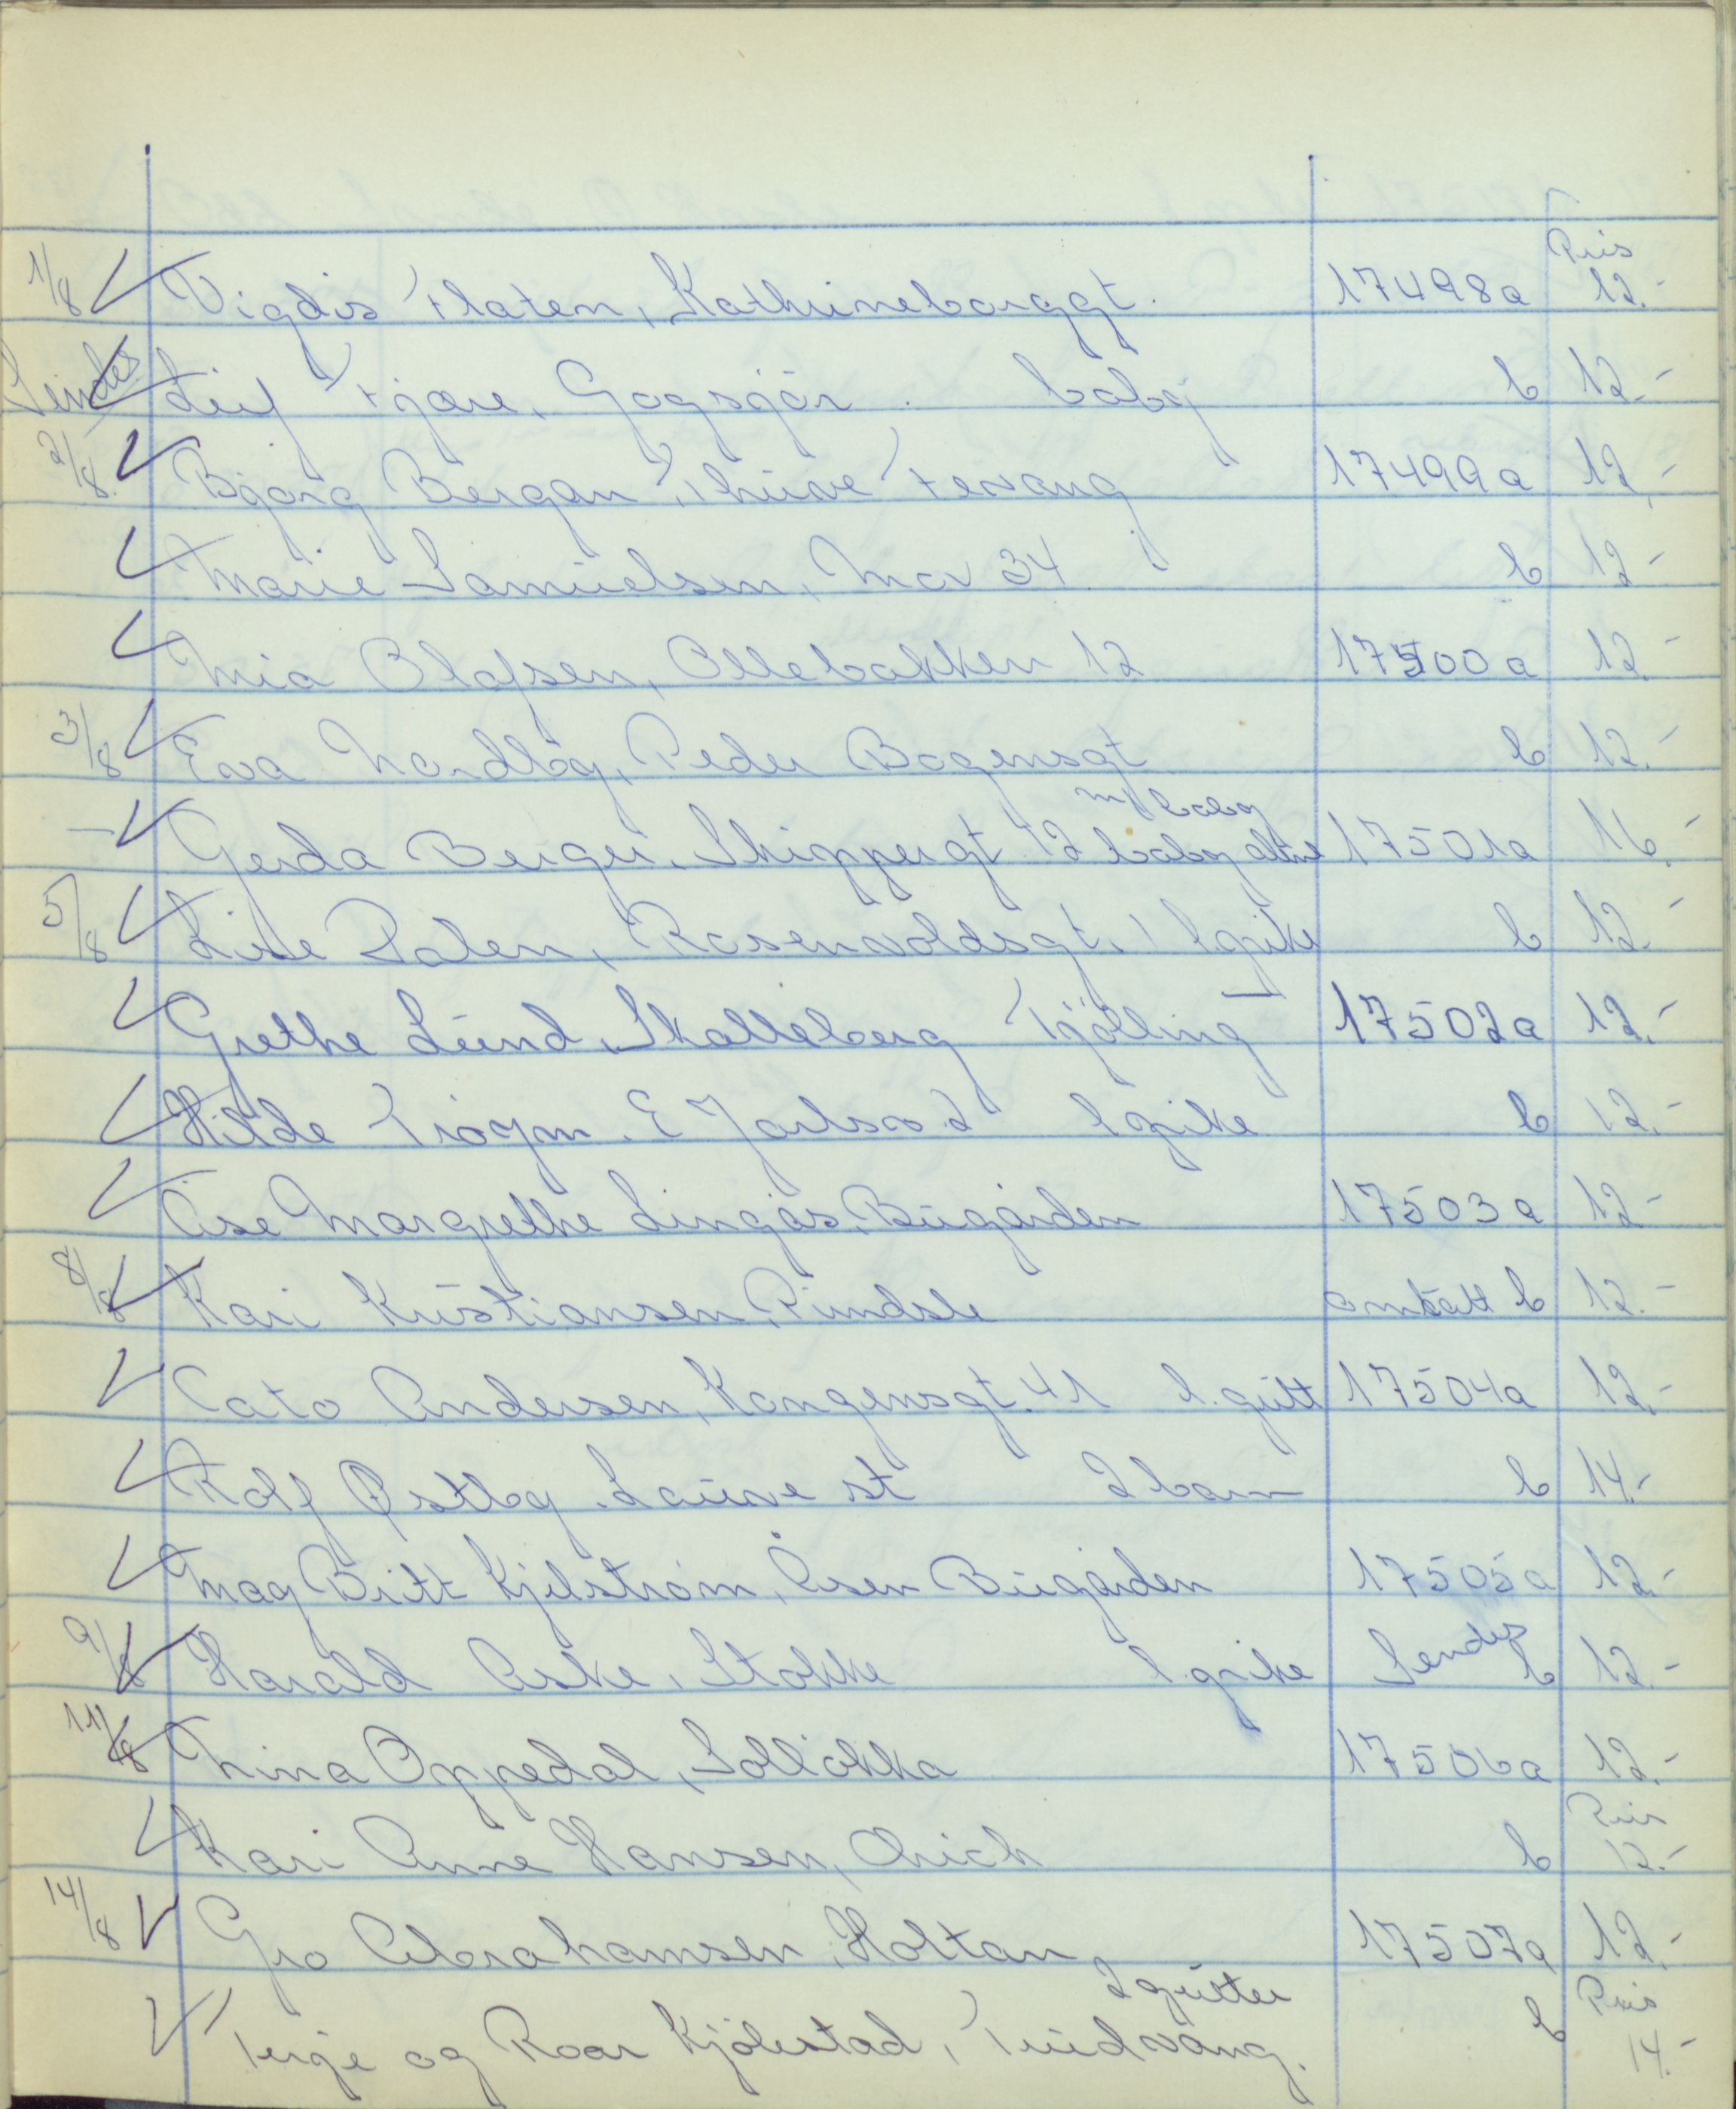 Pris
1/8 Vigdis Platen, Kathrineborggt. 17498a 12.-
Sendes Leif Fjære, Gogsjør. baby b 12.-
2/8 Bjørg Bergan, Thune Tevang 17499a 12,-
Marie Samuelsen, Mov 34 b 12-
Mia Olafsen, Ollebakken 12 17500a 12.-
3/8 Eva Nordby, Peder Bogensgt b 12.-
m/ baby
- Gerda Berger, Skippergt 12 baby alene 17501a 16.-
5/8 Lise Dalen, Rosenvoldsgt. 1 1 pike b 12.-
Grethe Lund, Skalleberg Tjølling 17502a 12.-
Hilde Trogm. E Jarlsv. 2 1 pike b 12.-
Åse Margrethe Lingås, Bugården 17503a 12-
8/8 Kari Kristiansen, Pindsle omtatt b 12.-
Cato Andersen, Kongensgt. 41 1. gutt 17504a 12.-
Rolf Østby, Lauve st 2 barn b 14.-
May Britt Kjelstrøm, Åsen Bugården 17505a 12.-
9/8 Harald Aske, Stokke 1. pike Sendes b 12.-
11/8 Nina Oppedal, Solløkka 17506a 12.-
Pris
Kari Anne Hansen, b 12.-
14/8 Gro Abrahamsen, Holtan 17507a 12.-
2 gutter Pris
Terje og Roar Kjølestad, Tuidvang. b 14.-